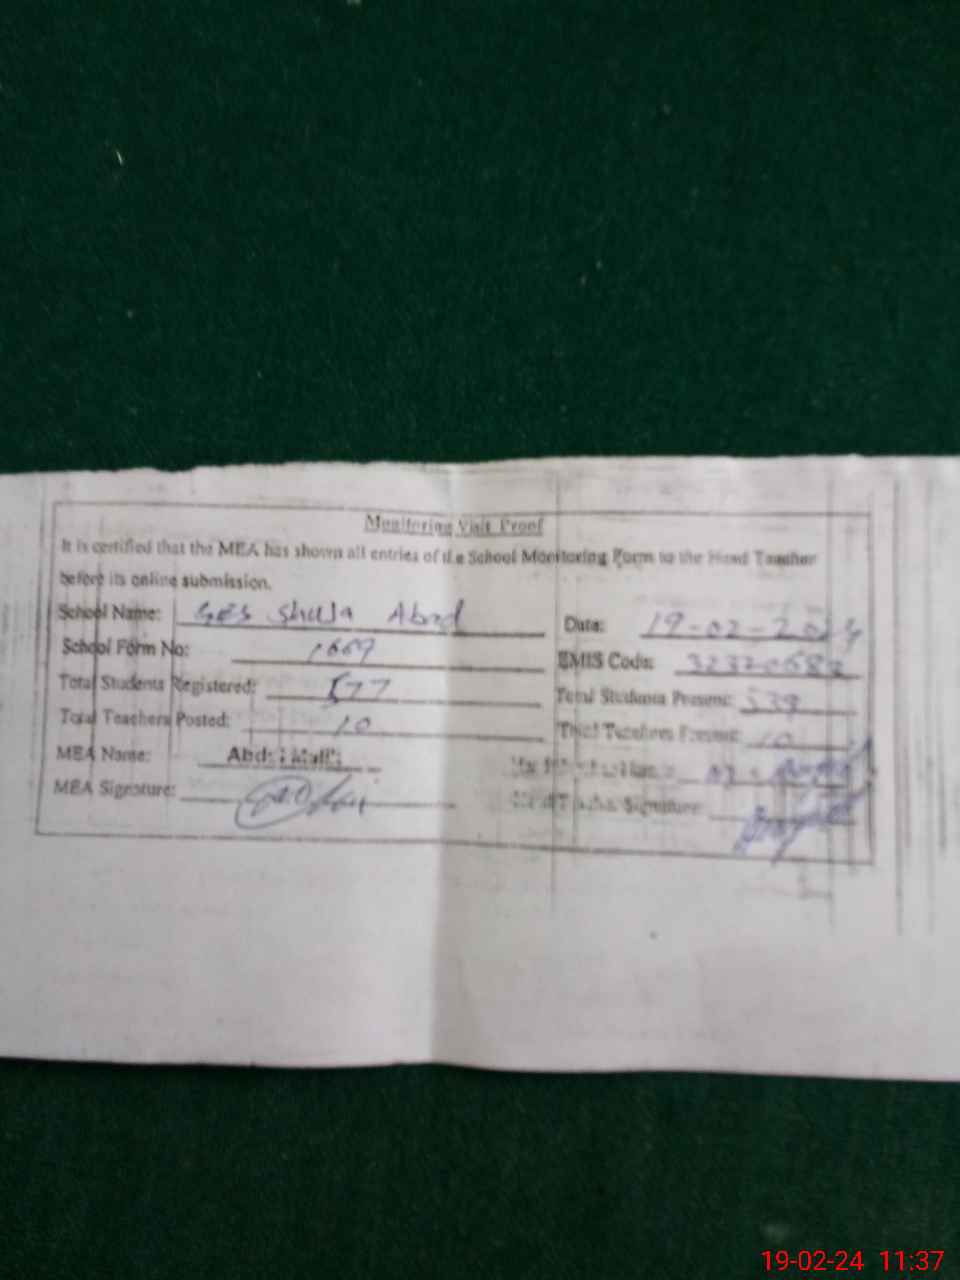 Monitoring Visit Proof
It is certified that the MEA has shown all entries of the School Monitoring Form to the Head Teacher
before its online submission.
School Name: GES Shuja Abad
Date: 19-02-2024
School Form No: 1669
EMIS Code:
Total Students Registered: 577
Total Students Present: 539
Total Teachers Posted: 10
Total Teachers Present: 10
MEA Name:
MEA Signature:
Head Teacher Signature:
19-02-24 11:37